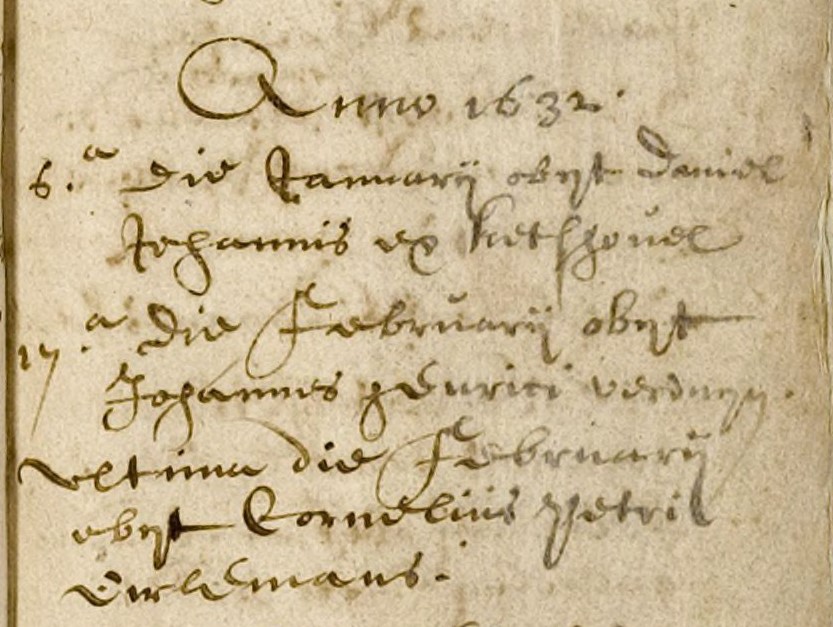 Anno 1632.
6.a die Januarij obijt Daniel
Johannis ex kethhövel
17.a die Februarij obijt
Johannes Henrici
Vltima die Februarij
obijt Cornelius Petri
Dirlemans.